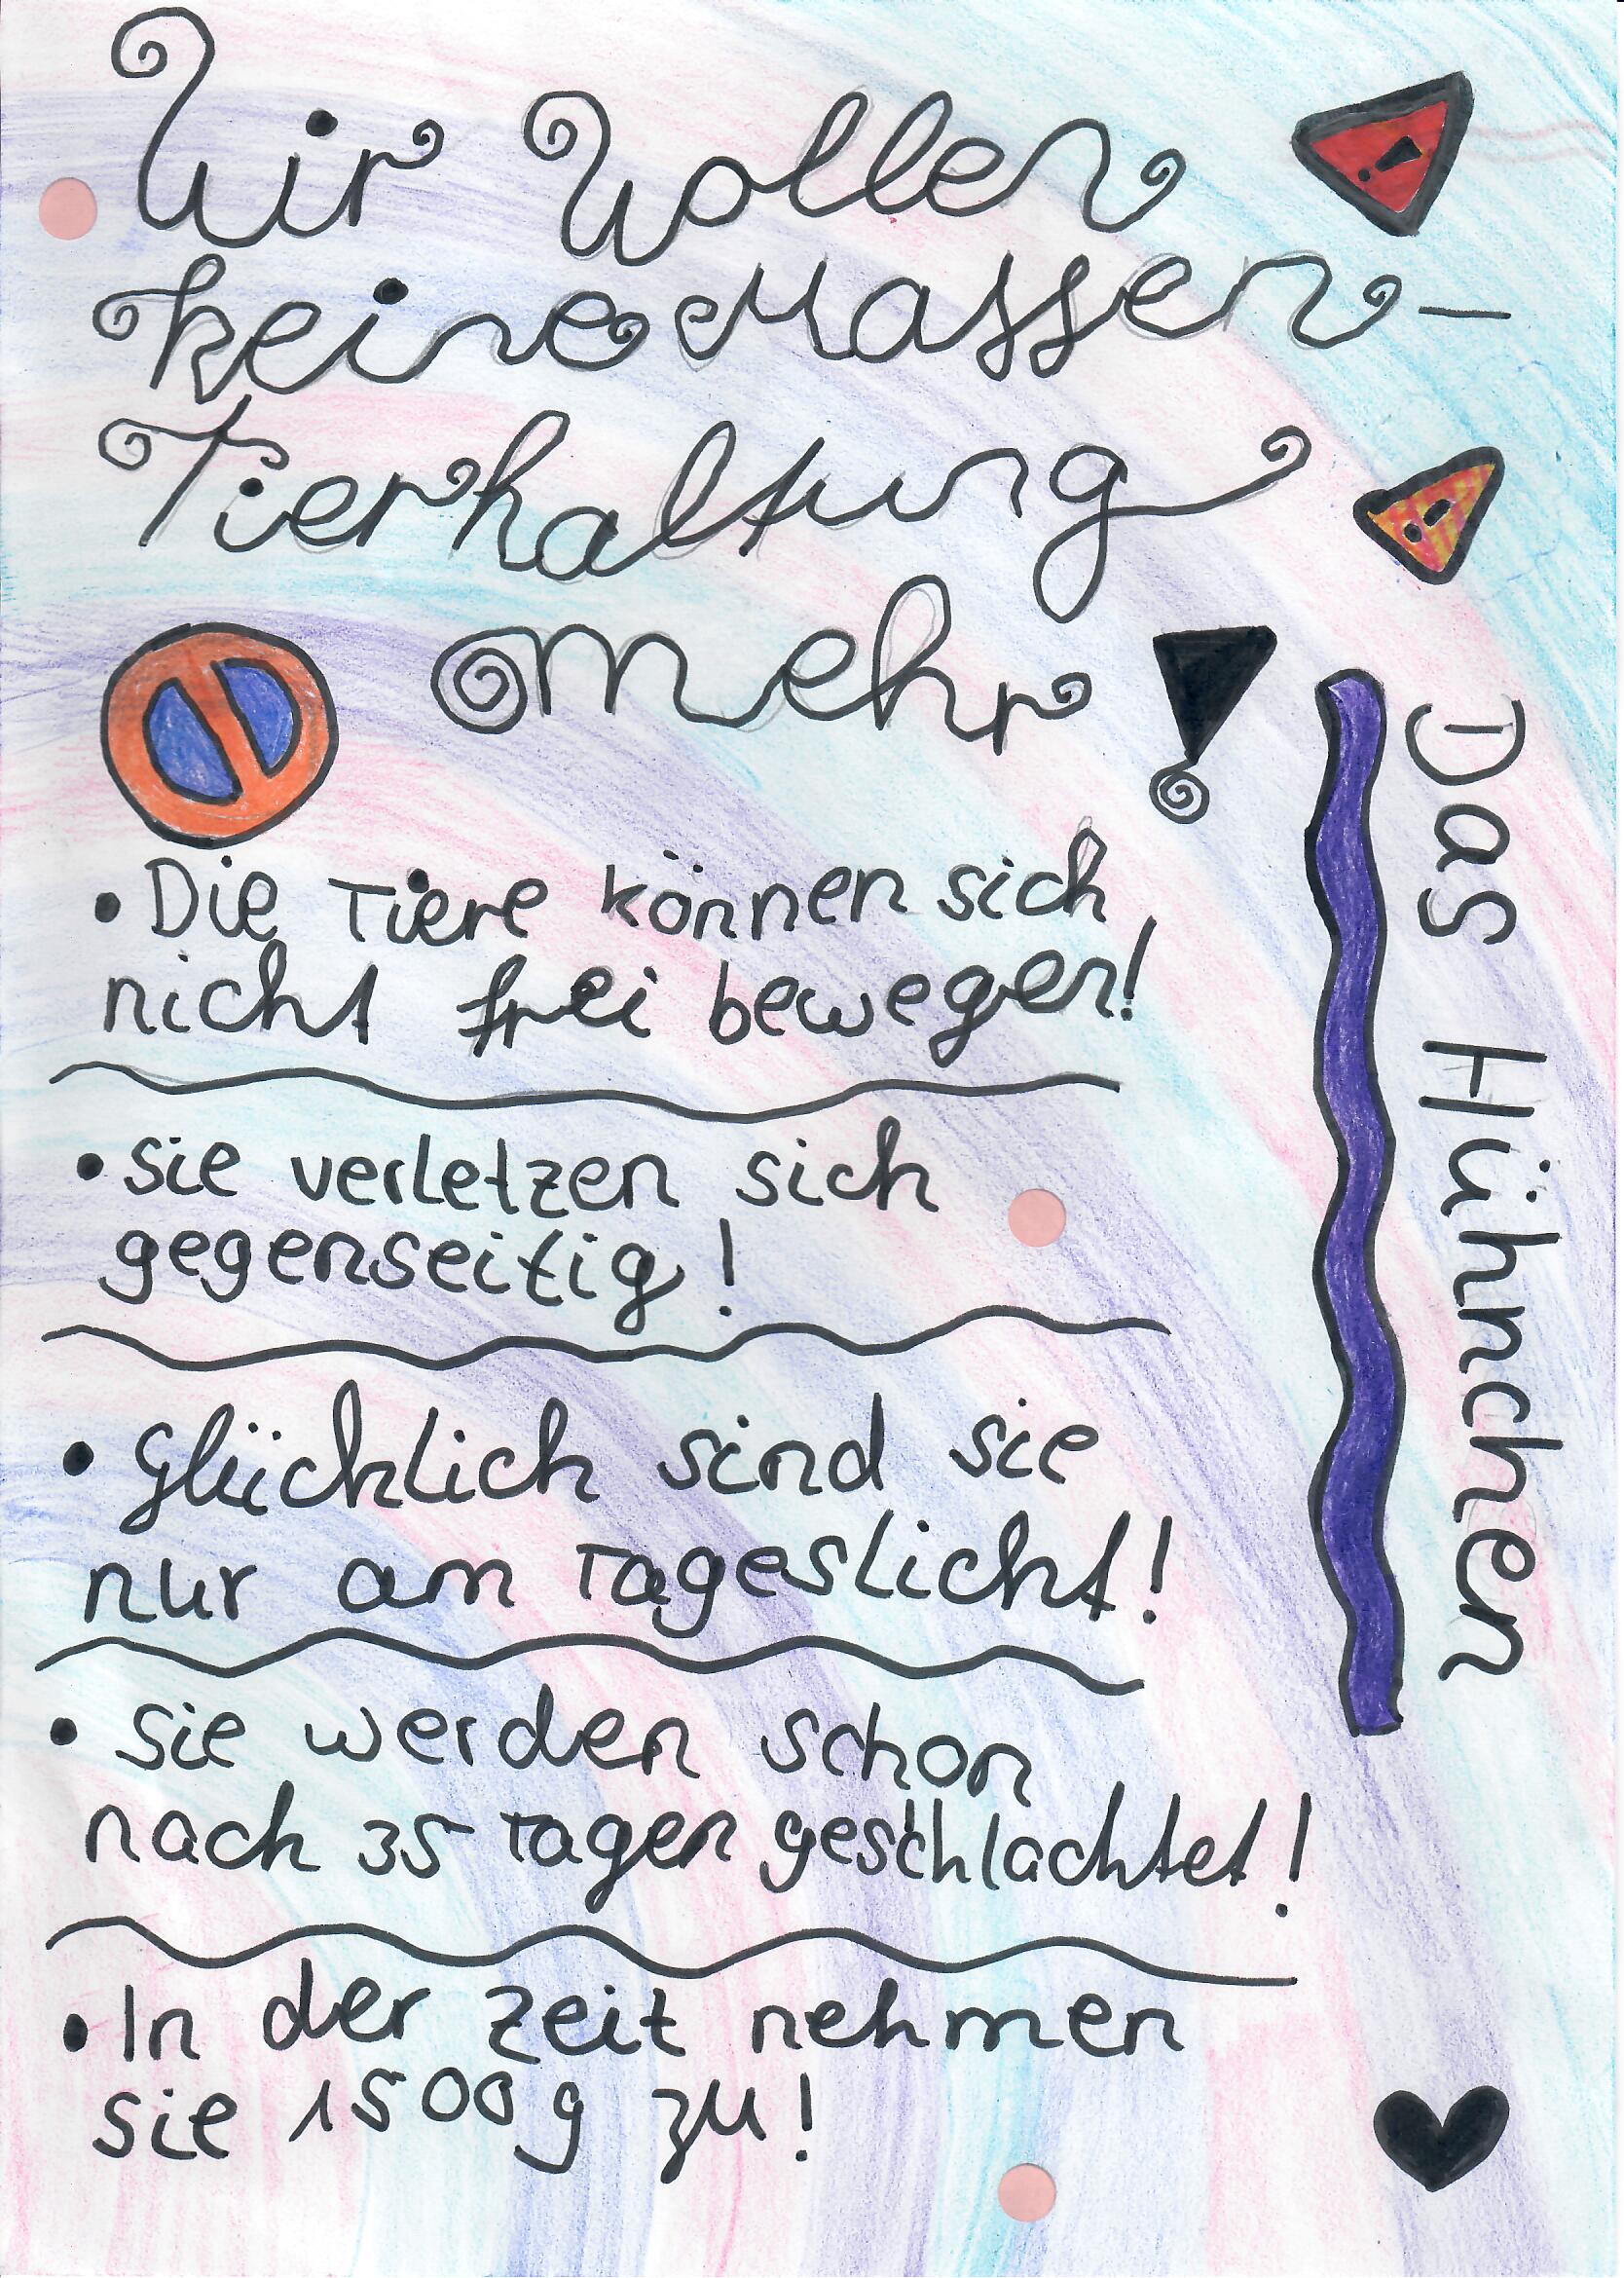 Wir Wollen
keine Massen-
Tierhaltung
mehr!
• Die Tiere können sich
nicht frei bewegen!
• sie verletzen sich
gegenseitig!
• Glücklich sind sie
nur am Tageslicht!
• Sie werden schon
nach 35 Tagen geschlachtet!
• In der Zeit nehmen
sie 1500g zu!
Das Hühnchen